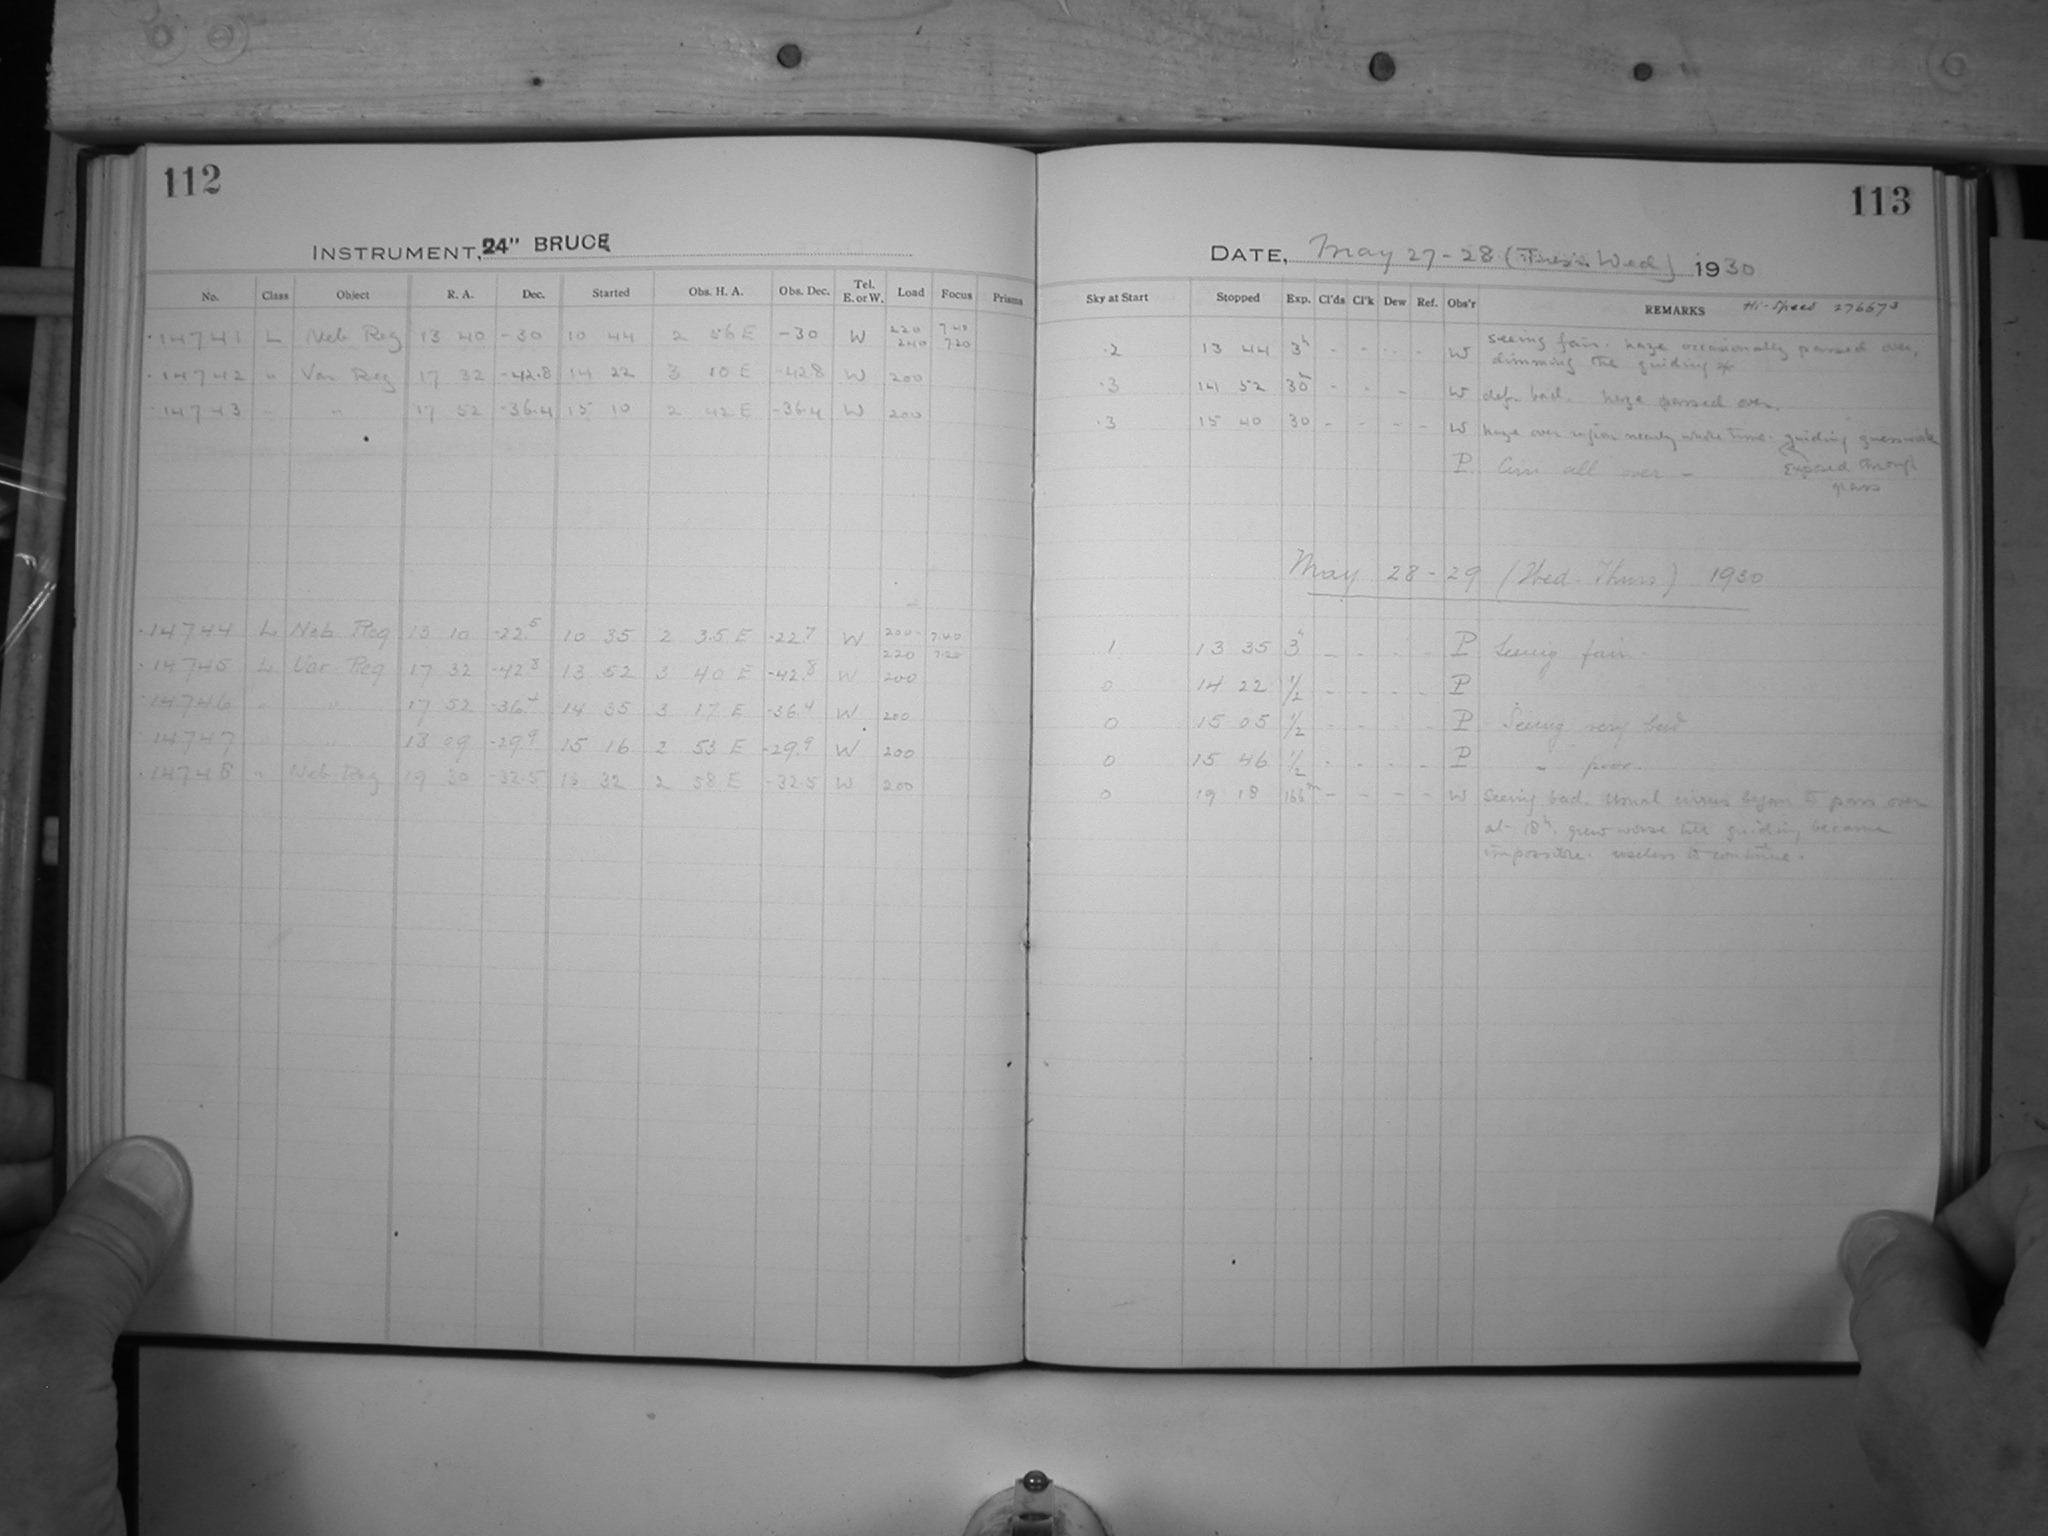 112
INSTRUMENT, 24" BRUCE
No. Class Object R. A. Dec. Started Obs. H. A. Obs. Dec. Tel. E. or W. Load Focus Prisms
14741 L Neb Reg 13 40 -30 10 44 2 56 E -30 W 220 240 7.40 7.20
14742 " Var Reg 17 32 -42.8 14 22 3 10 E -42.8 W 200
14743 " " 17 52 -36.4 15 10 2 42 E -36.4 W 200
14744 L Neb Reg 13 10 -22.5 10 35 2 35 E -22.7 W 200 220 7.40 7.20
14745 L Var Reg 17 32 -42.8 13 52 3 40 E -42.8 W 200
14746 " " 17 52 -36.4 14 35 3 17 E -36.4 W 200
14747 " " 18 09 -29.9 15 16 2 53 E -29.9 W 200
14748 " Neb Reg 19 30 -32.5 16 32 2 58 E -32.5 W 200
113
DATE, May 27-28 (Tues. Wed) 1930
Sky at Start Stopped Exp. Cl'ds Cl'k Dew Ref. Obs'r REMARKS Hi-Speed 276673
.2 13 44 3h - - - - W seeing fair. haze occasionally passed over,
dimming the guiding *
.3 14 52 30m - - - W defn bad. haze passed over.
.3 15 40 30 - - - - W haze over region nearly whole time. guiding guesswork
P. Cirri all over - Exposed through
glass
May 28-29 (Wed. Thurs) 1930
1 13 35 3h - - - - P Seeing fair.
0 14 22 1/2 - - - - P
0 15 05 1/2 - - - - P Seeing very bad
0 15 46 1/2 - - - - P " poor.
0 19 18 166m - - - - W Seeing bad. Usual cirrus began to pass over
at 18h. grew worse till guiding became
impossible. useless to continue.